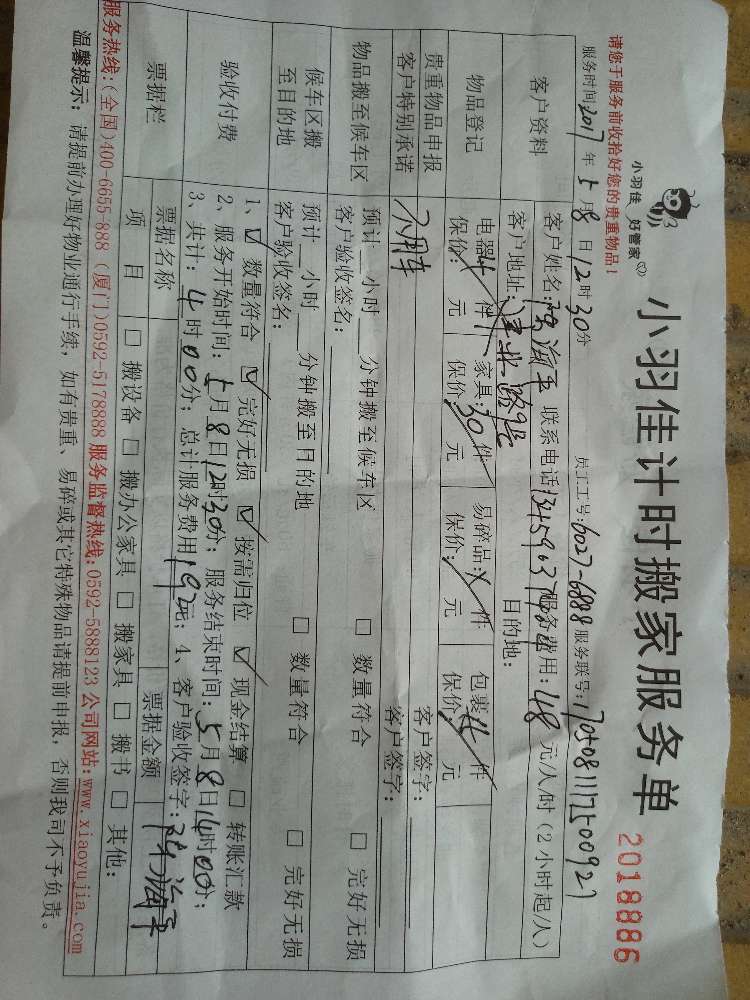 小羽佳 好管家
小羽佳计时搬家服务单
2018886
请您于服务前收拾好您的贵重物品！
服务时间:2017年5月8日12时30分 员工工号:6027-6888 服务联号:17050811117500927
客户资料
客户姓名: 联系电话 服务费用:48元/人/时(2小时起/人)
客户地址: 目的地:
物品登记
电器 件 家具:30件 易碎品: 件 包裹 件
保价: 元 保价: 元 保价: 元 保价: 元
贵重物品申报 客户签字:
客户特别承诺 不用车 客户签字:
物品搬至候车区
预计 小时 分钟搬至候车区 □ 数量符合 □ 完好无损
客户验收签名:
候车区搬至目的地
预计 小时 分钟搬至目的地 □ 数量符合 □ 完好无损
客户验收签名:
验收付费
1、☑ 数量符合 ☑ 完好无损 ☑ 按需归位 ☑ 现金结算 □ 转账汇款
2、服务开始时间:5月8日12时30分; 服务结束时间:5月8日14时00分;
3、共计:4时00分; 总计服务费用192元; 4、客户验收签字:
票据栏
票据名称 票据金额
项 目 □ 搬设备 □ 搬办公家具 □ 搬家具 □ 搬书 □ 其他:
服务热线:(全国)400-6655-888 (厦门)0592-5178888 服务监督热线:0592-5888123 公司网站:www.xiaoyujia.com
温馨提示: 请提前办理好物业通行手续，如有贵重、易碎或其它特殊物品请提前申报，否则我司不予负责。